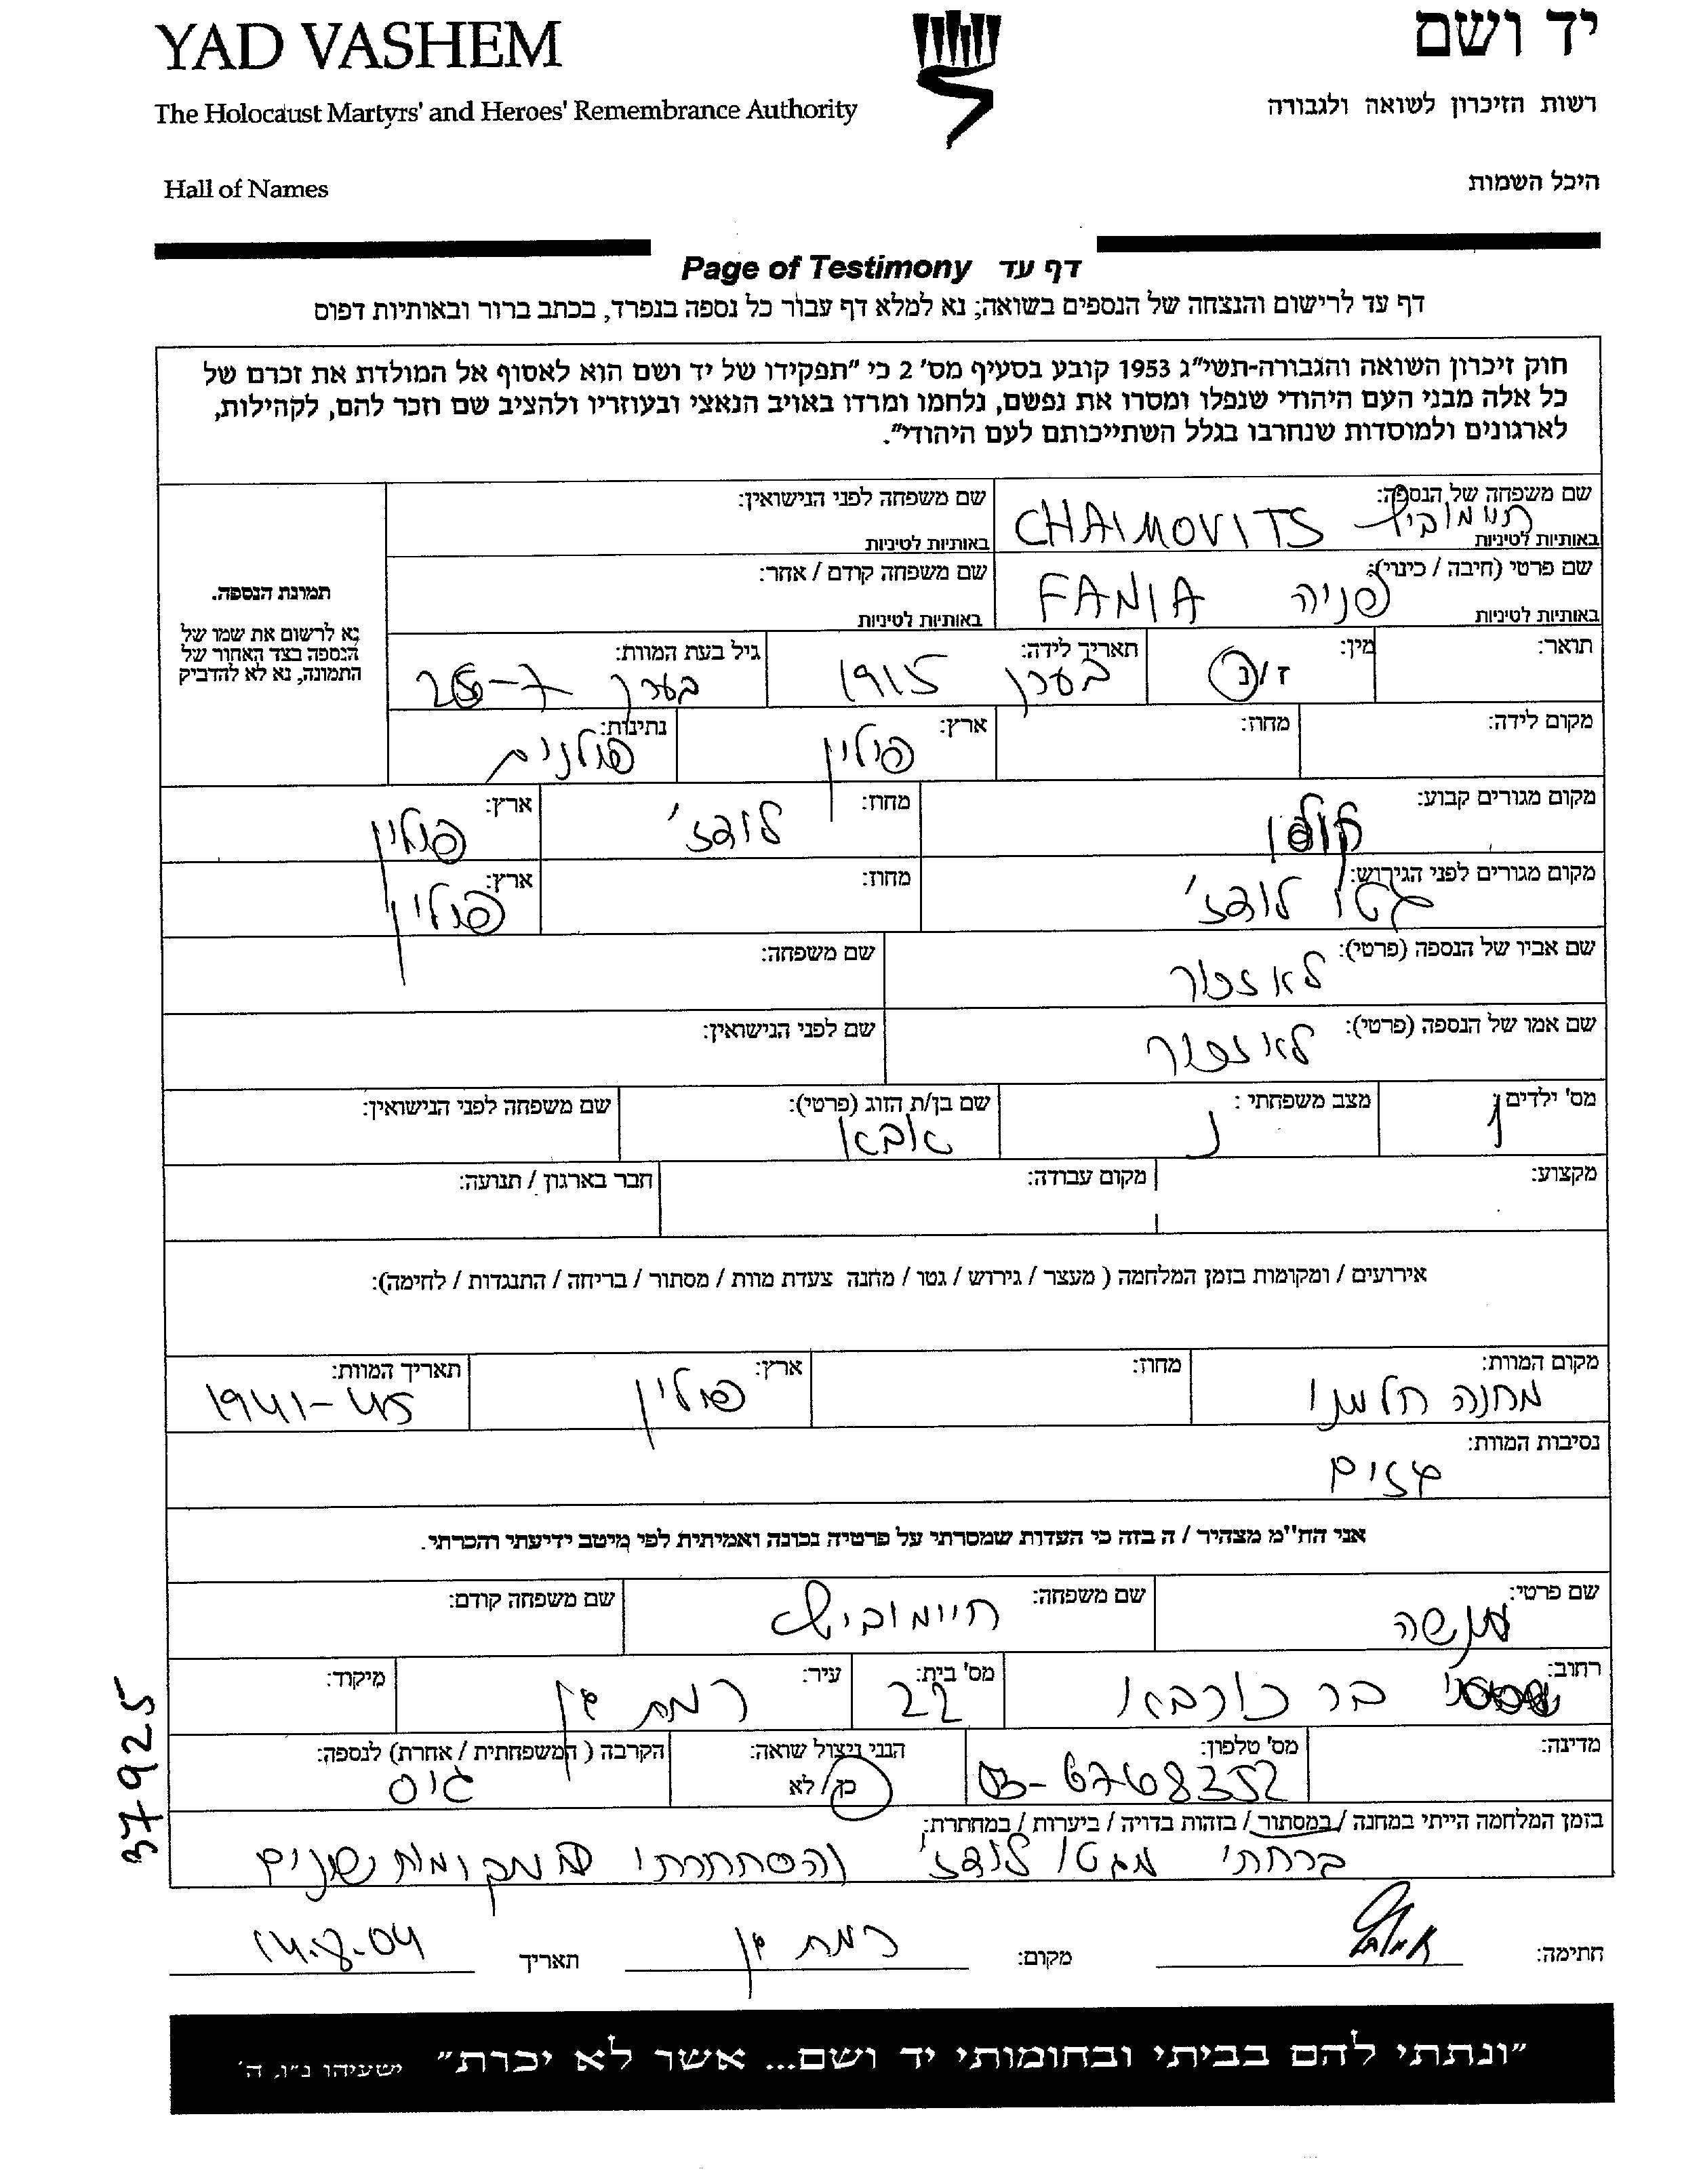 YAD VASHEM
יד ושם
The Holocaust Martyrs' and Heroes' Remembrance Authority
רשות הזיכרון לשואה ולגבורה
Hall of Names
היכל השמות
Page of Testimony דף עד
דף עד לרישום והנצחה של הנספים בשואה; נא למלא דף עבור כל נספה בנפרד, בכתב ברור ובאותיות דפוס
חוק זיכרון השואה והגבורה-תשי"ג 1953 קובע בסעיף מס' 2 כי "תפקידו של יד ושם הוא לאסוף אל המולדת את זכרם של
כל אלה מבני העם היהודי שנפלו ומסרו את נפשם, נלחמו ומרדו באויב הנאצי ובעוזריו ולהציב שם וזכר להם, לקהילות,
לארגונים ולמוסדות שנחרבו בגלל השתייכותם לעם היהודי".
שם משפחה של הנספה: שם משפחה לפני הנישואין:
חיימוביץ CHAIMOVITS
באותיות לטיניות באותיות לטיניות
שם פרטי (חיבה / כינוי): שם משפחה קודם / אחר:
פניה FANIA
באותיות לטיניות באותיות לטיניות
תמונת הנספה.
נא לרשום את שמו של
הנספה בצד האחור של
התמונה, נא לא להדביק
תואר: מין: ז/נ תאריך לידה: בערך 1915 גיל בעת המוות: בערך
מקום לידה: מחוז: ארץ: פולין נתינות: פולנים
מקום מגורים קבוע: מחוז: לודז' ארץ: פולין
מקום מגורים לפני הגירוש: גטו לודז' מחוז: ארץ: פולין
שם אביו של הנספה (פרטי): לא זכור שם משפחה:
שם אמו של הנספה (פרטי): לא זכור שם לפני הנישואין:
מס' ילדים: 1 מצב משפחתי: נ שם בן/ת הזוג (פרטי): אבא שם משפחה לפני הנישואין:
מקצוע: מקום עבודה: חבר בארגון / תנועה:
אירועים / ומקומות בזמן המלחמה ( מעצר / גירוש / גטו / מחנה צעדת מוות / מסתור / בריחה / התנגדות / לחימה):
מקום המוות: מחנה חלמנו מחוז: ארץ: פולין תאריך המוות: 1941-45
נסיבות המוות: גזים
אני הח"מ מצהיר / ה בזה כי העדות שמסרתי על פרטיה נכונה ואמיתית לפי מיטב ידיעתי והכרתי.
שם פרטי: מנשה שם משפחה: חיימוביץ שם משפחה קודם:
רחוב: בר כוכבא מס' בית: 22 עיר: רמת גן מיקוד:
מדינה: מס' טלפון: 03-6768352 הנני ניצול שואה: כן / לא הקרבה ( המשפחתית / אחרת) לנספה: גיס
בזמן המלחמה הייתי במחנה / במסתור / בזהות בדויה / ביערות / במחתרת:
ברחתי מגטו לודז' והסתתרתי במקומות שונים
חתימה: מקום: רמת גן תאריך 14.8.04
37925
"ונתתי להם בביתי ובחומותי יד ושם... אשר לא יכרת" ישעיהו נ"ו, ה'